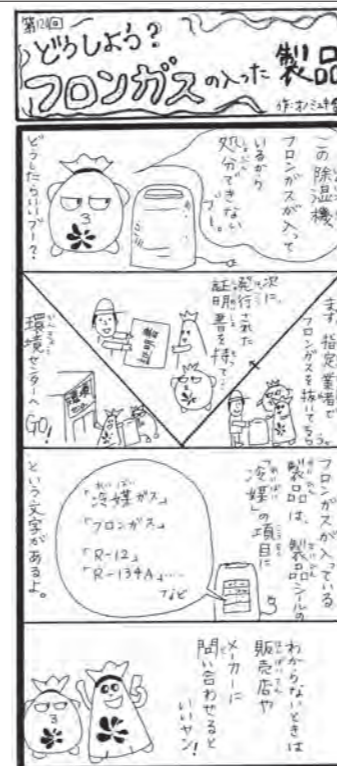 第124回
どうしよう?
フロンガスの入った製品
この除湿機
フロンガスが入って
いるから
処分できない
ブー。
どうしたらいいブー?
まず、指定業者で
フロンガスを抜いてもらう。
次に、
発行された
証明書を持って…
証明書
環境センターへ
GO!
環境
フロンガスが入っている
製品は、製品シールの
「冷媒」の項目に
「冷媒ガス」
「フロンガス」
「R-12」
「R-134A」……
など
という文字があるよ。
わからないときは
販売店や
メーカーに
問い合わせると
いいヤン!